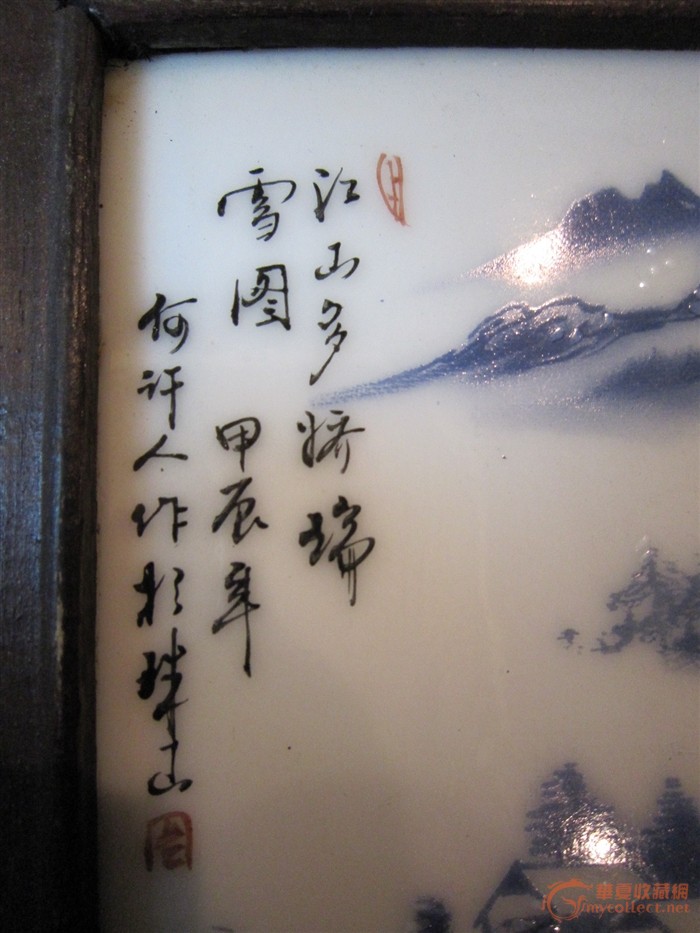 江山多娇瑞
雪图 甲辰年
何许人作於珠山
華夏收藏網
mycollect.net